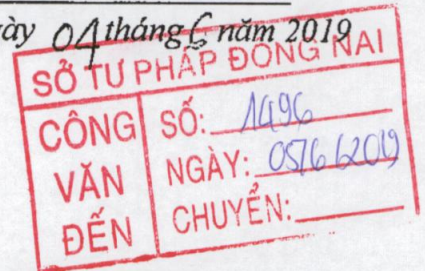 ày 04 tháng 6 năm 2019
SỞ TƯ PHÁP ĐỒNG NAI
CÔNG VĂN ĐẾN
SỐ: 1496
NGÀY: 05/6/2019
CHUYỂN: